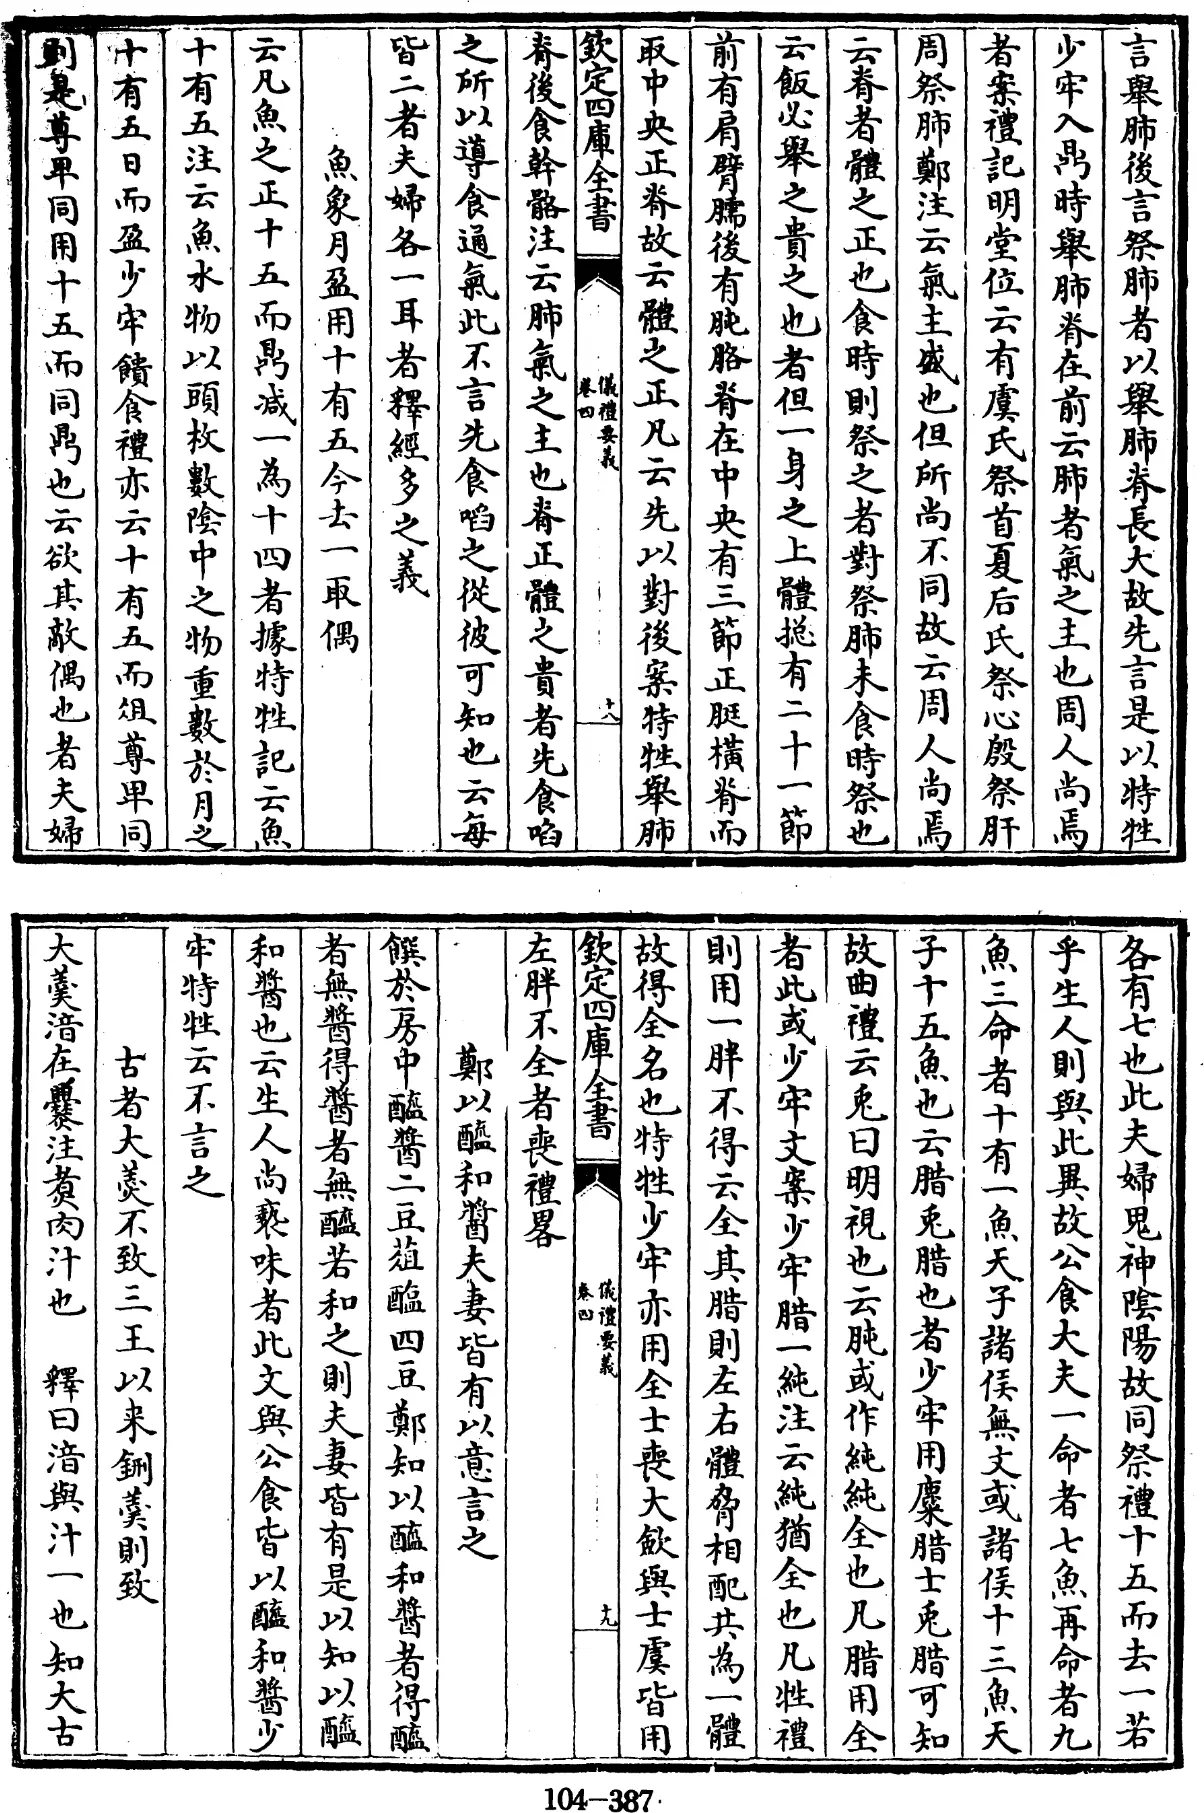 言舉肺後言祭肺者以舉肺脊長大故先言是以特牲
少牢入鼎時舉肺脊在前云肺者氣之主也周人尚焉
者案禮記明堂位云有虞氏祭首夏后氏祭心殷祭肝
周祭肺鄭注云氣主盛也但所尚不同故云周人尚焉
云脊者體之正也食時則祭之者對祭肺未食時祭也
云飯必舉之貴之也者但一身之上體揔有二十一節
前有肩臂臑後有肫胳脊在中央有三節正脡橫脊而
取中央正脊故云體之正凡云先以對後案特牲舉肺
欽定四庫全書
儀禮要義
卷四
十八
脊後食幹骼注云肺氣之主也脊正體之貴者先食啗
之所以導食通氣此不言先食啗之從彼可知也云每
皆二者夫婦各一耳者釋經多之義
魚象月盈用十有五今去一取偶
云凡魚之正十五而鼎減一為十四者據特牲記云魚
十有五注云魚水物以頭枚數陰中之物重數於月之
十有五日而盈少牢饋食禮亦云十有五而俎尊卑同
則是尊卑同用十五而同鼎也云欲其敵偶也者夫婦
各有七也此夫婦鬼神陰陽故同祭禮十五而去一若
乎生人則與此異故公食大夫一命者七魚再命者九
魚三命者十有一魚天子諸侯無文或諸侯十三魚天
子十五魚也云腊兎腊也者少牢用麋腊士兎腊可知
故曲禮云兎曰明視也云肫或作純純全也凡腊用全
者此或少牢文案少牢腊一純注云純猶全也凡牲禮
則用一胖不得云全其腊則左右體脅相配共為一體
故得全名也特牲少牢亦用全士喪大歛與士虞皆用
欽定四庫全書
儀禮要義
卷四
十九
左胖不全者喪禮畧
鄭以醯和醬夫妻皆有以意言之
饌於房中醯醬二豆菹醢四豆鄭知以醯和醬者得醯
者無醬得醬者無醯若和之則夫妻皆有是以知以醯
和醬也云生人尚褻味者此文與公食皆以醯和醬少
牢特牲云不言之
古者大羮不致三王以來鉶羮則致
大羮湆在爨注煑肉汁也 釋曰湆與汁一也知大古
104-387